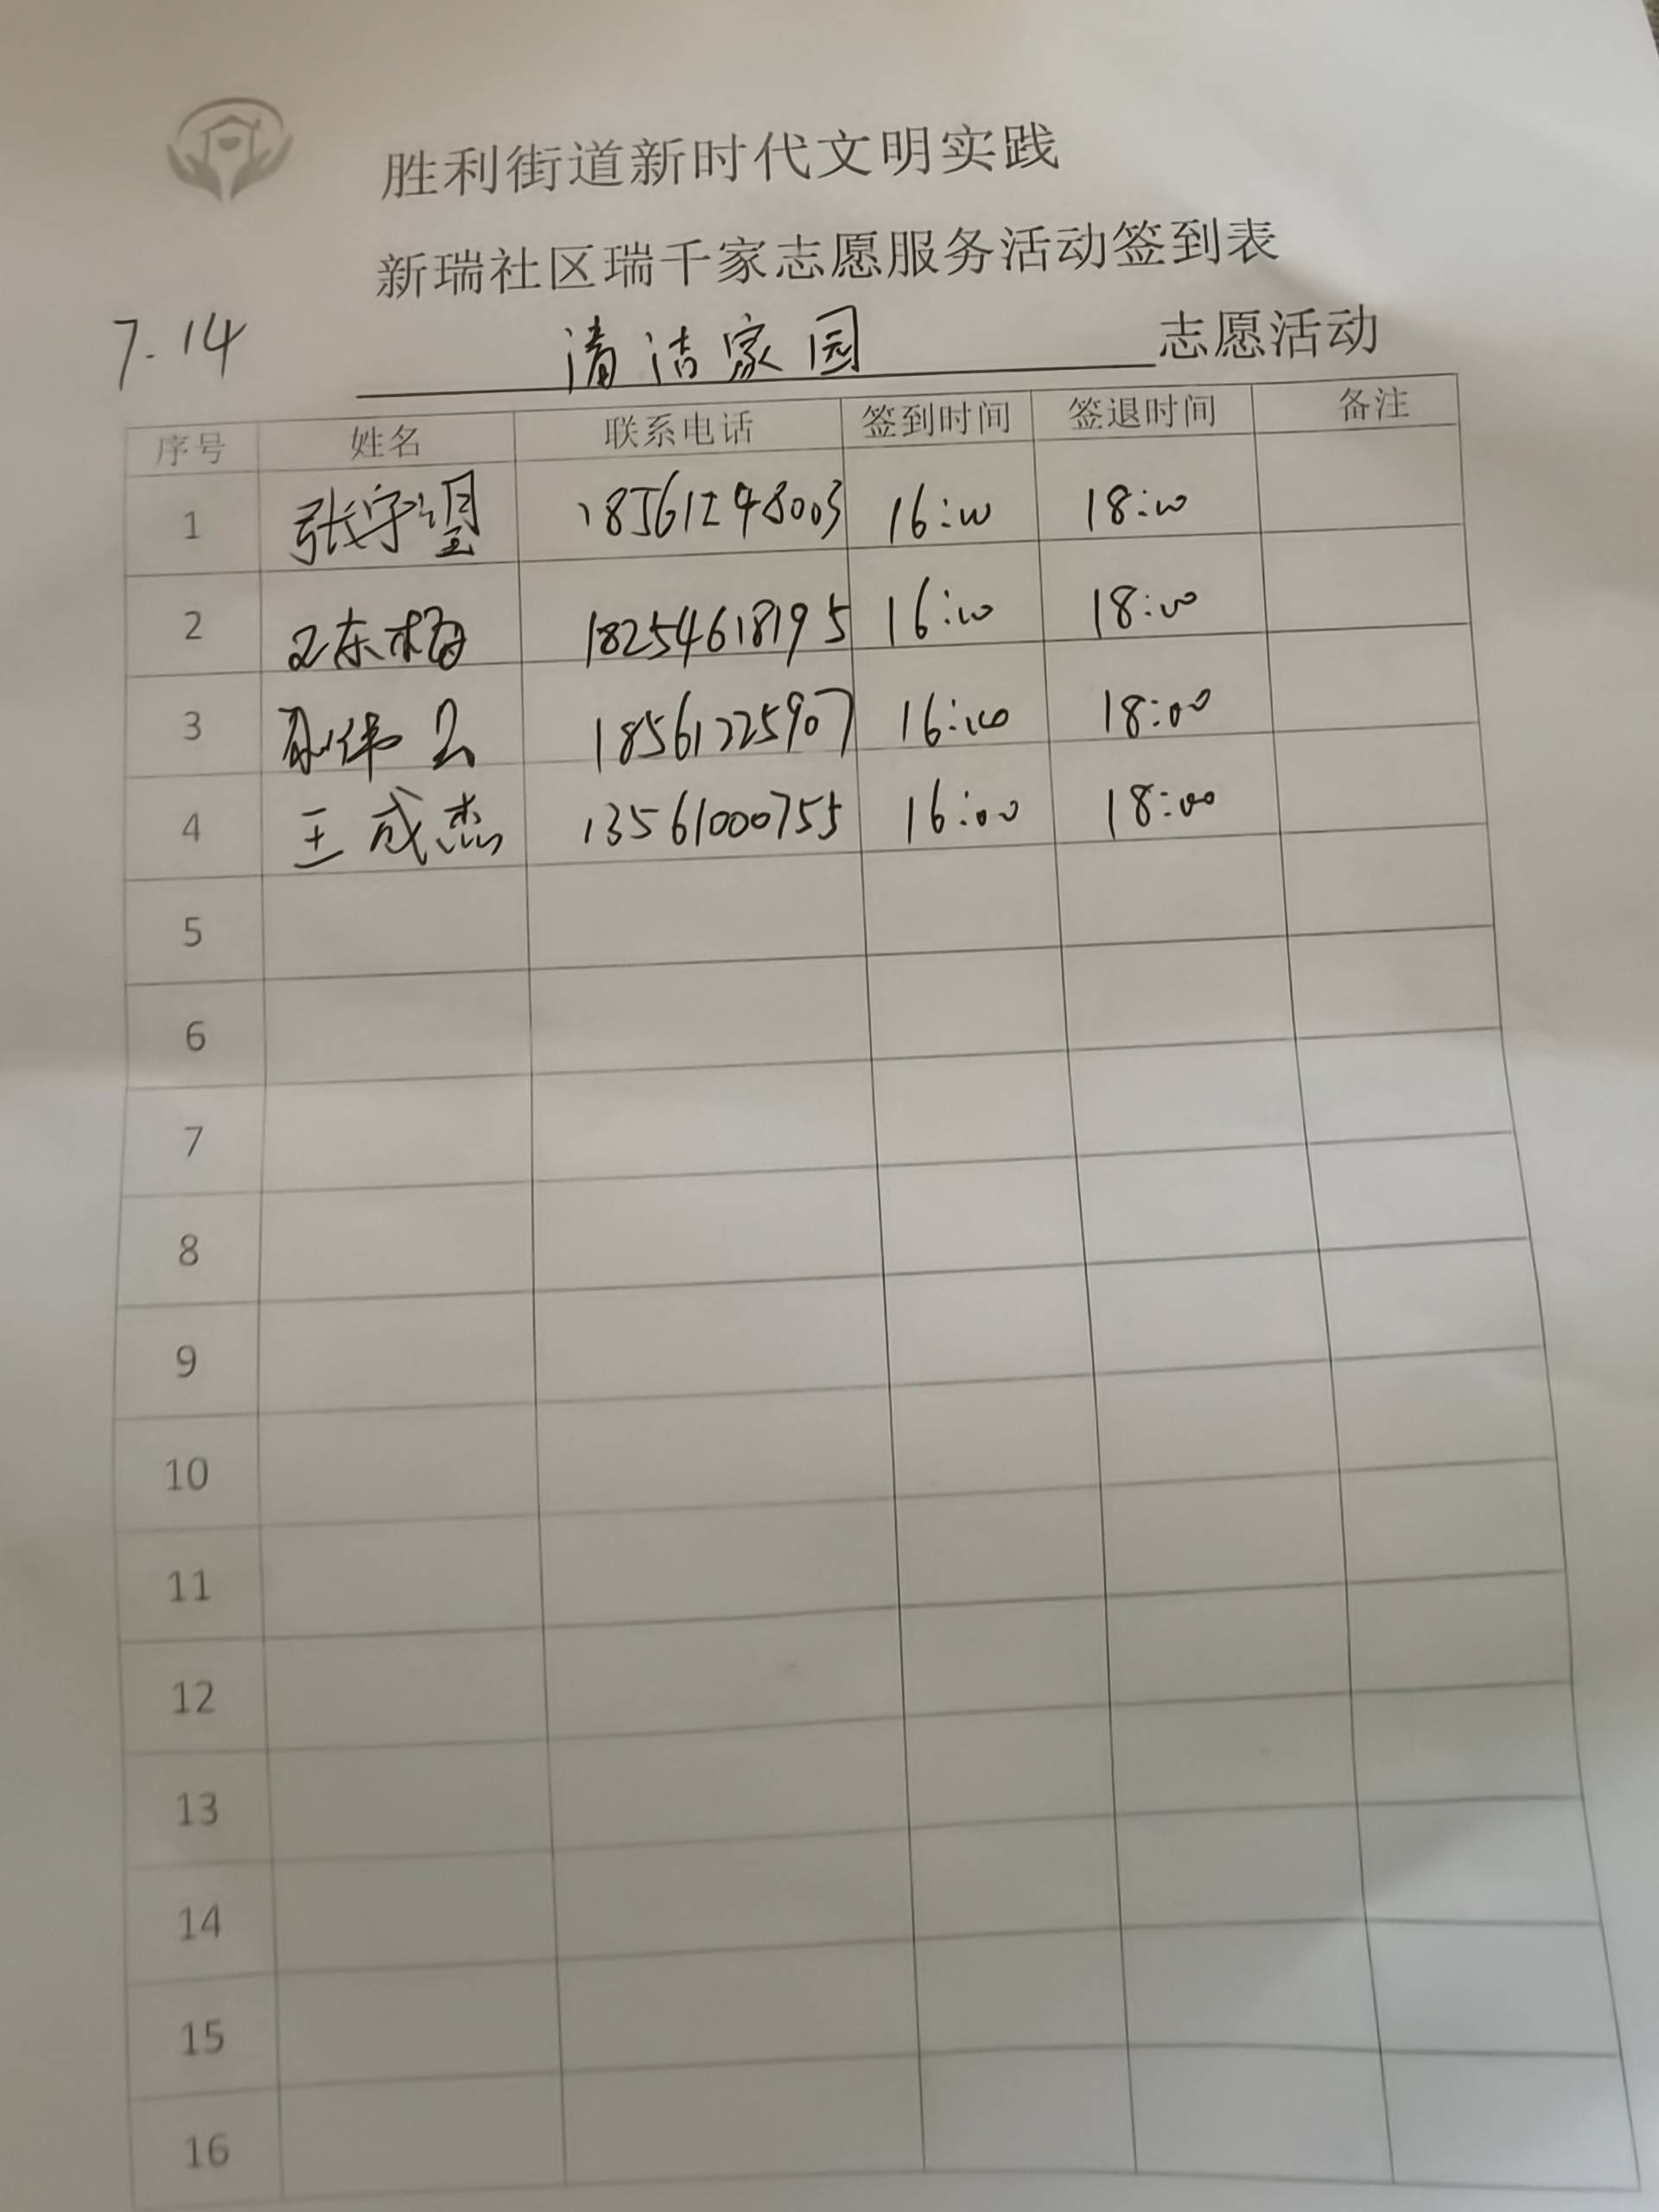 胜利街道新时代文明实践
新瑞社区瑞千家志愿服务活动签到表
7.14 清洁家园 志愿活动
序号 姓名 联系电话 签到时间 签退时间 备注
1 张守 18561248003 16:00 18:00
2 王东梅 18254618195 16:00 18:00
3 18561225907 16:00 18:00
4 王成杰 13561000755 16:00 18:00
5
6
7
8
9
10
11
12
13
14
15
16